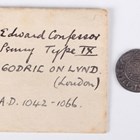 Edward Confessor
Penny Type IX
GODRIC ON LVND.
(London)
A.D. 1042-1066.